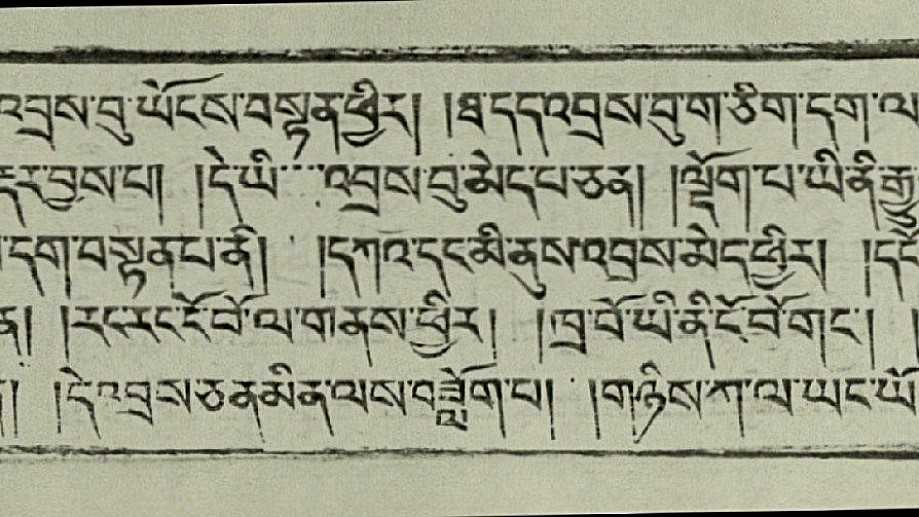 འབྲས་བུ་ཡོངས་བསྟན་ཕྱིར། །ཐ་དད་འབྲས་བུ་གཅིག་དག་ལ
དར་བྱས་པ། །དེ་ཡི་་་་འབྲས་བུ་མེད་པ་ཅན། །ལྡོག་པ་ཡི་ནི་རྒྱུ
དག་བསྟན་པ་ནི། །དཀའ་དང་མི་ནུས་འབྲས་མེད་ཕྱིར། །དངོ
ན། །རང་རང་ངོ་བོ་ལ་གནས་ཕྱིར། །ཁྲ་བོ་ཡི་ནི་ངོ་བོ་གང་། །
། །དེ་འབྲས་ཅན་མིན་ལས་བཟློག་པ། །གཉིས་ཀ་ལ་ཡང་ཡོ